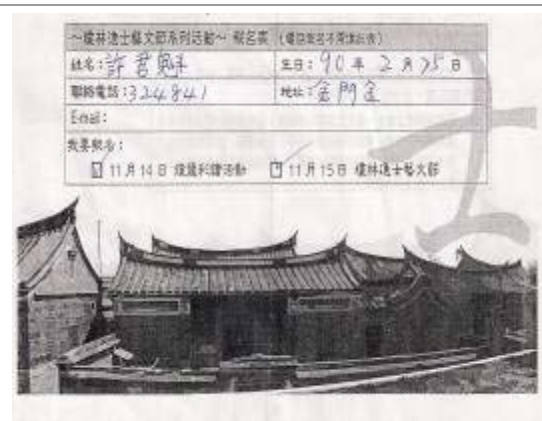 ~瓊林逸士藝文節系列活動~ 報名表 (電話報名不用填此表)
姓名:許君 生日:90年2月25日
聯絡電話:324841 地址:金門
E-mail:
我要報名:
11月14日 彩繪活動 11月15日 瓊林逸士藝文節
士